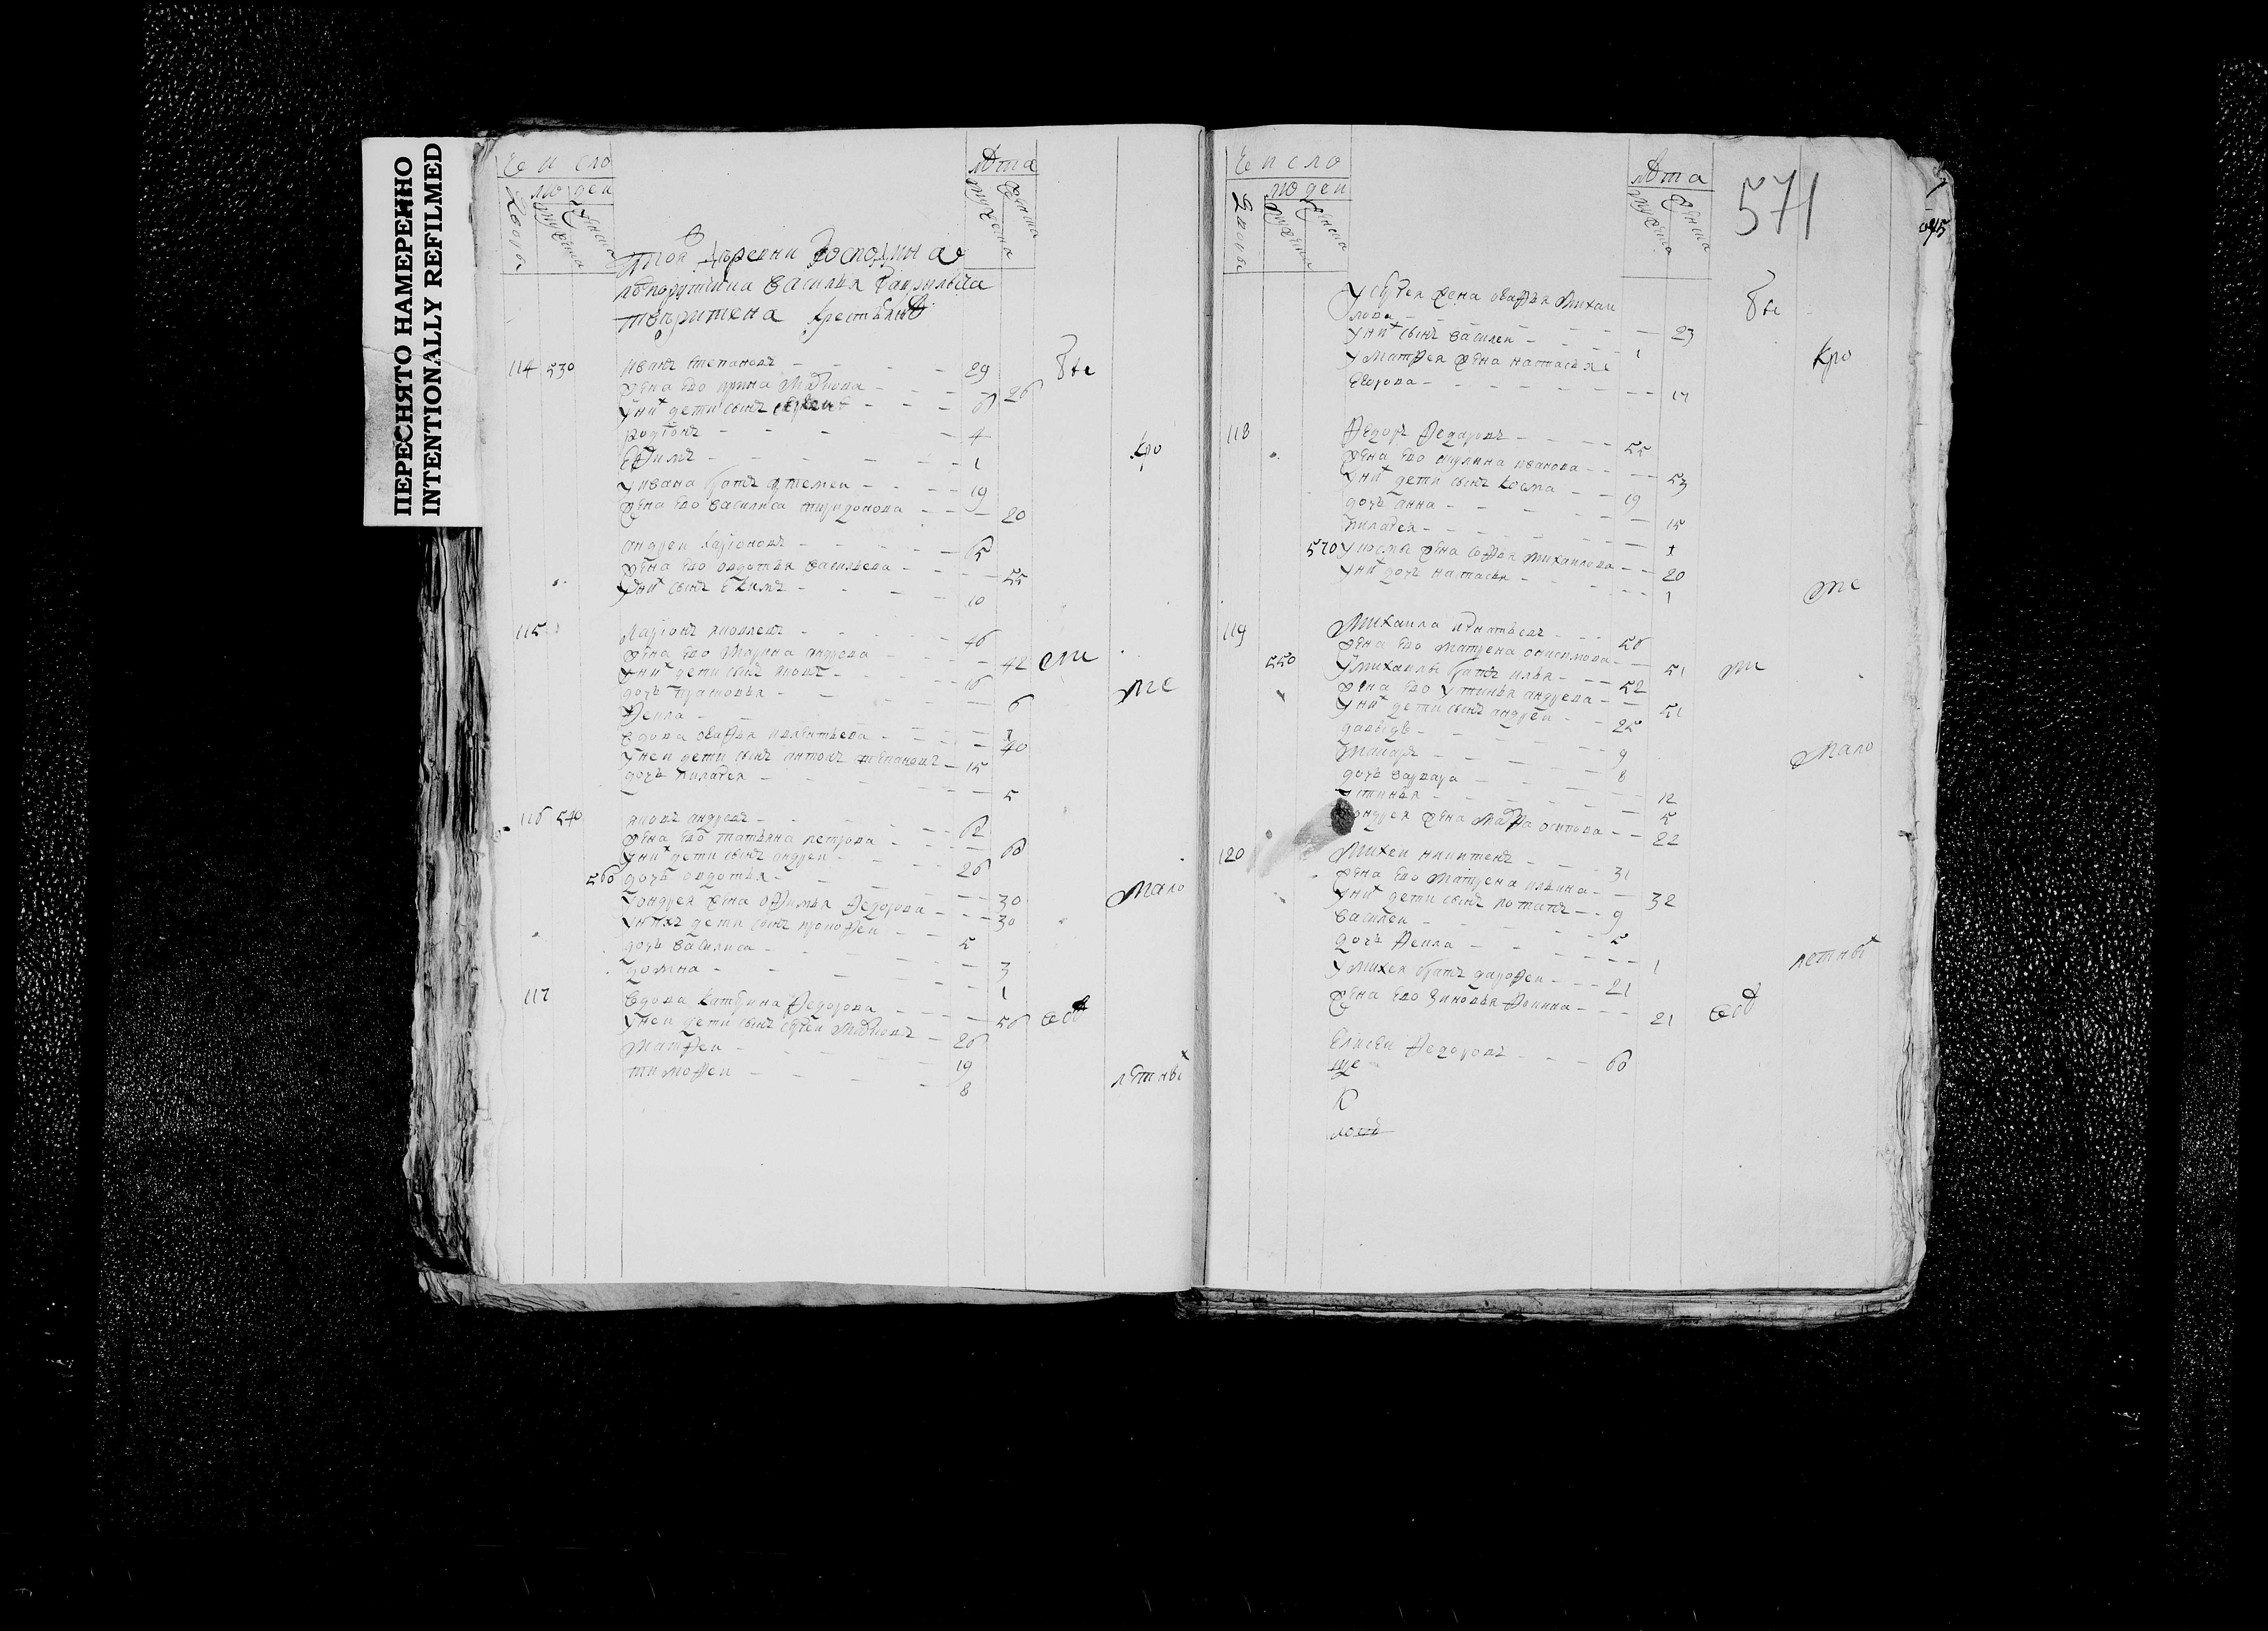 ПЕРЕСНЯТО НАМЕРЕННО
INTENTIONALLY REFILMED
Число
людеи
Дворы
мужеска
женска
лѣта
мужеска
женска
тои деревни господина
порутчика василья гаврильича
крестьяне
114 530 иванъ степановъ 29
жена ево ирина маркова 26
у них дети сынъ 6
родионъ 4
ефимъ 1
у ивана братъ артемеи 19
жена ево василиса 20
андреи ларионовъ 65
жена ево овдотья васильева 55
у них сынъ екимъ 10
115 ларионъ яковлевъ 46
жена ево марина андреева 42
у них дети сынъ яковъ 16
дочь прасковья 6
фекла 1
вдова 40
у неи дети сынъ антонъ степановъ 15
дочь пилагея 5
116 540 яковъ андреевъ 62
жена ево татьяна петрова 60
у них дети сынъ андреи 26
560 дочь овдотья 30
у ондрея жена офимья федорова 30
у них дети сынъ прокофеи 5
дочь василиса 3
домна 1
117 вдова катерина федорова 56
у неи дети сынъ сергеи марковъ 26
матфеи 19
тимофеи 8
бые
кро
сти
ме
мало
лѣтных
Число
людеи
Дворы
мужеска
женска
лѣта
мужеска
женска
571
у сергея жена михаи
лова 23
у них сынъ василеи 1
у матфея жена настасья
егорова 17
118 федоръ федоровъ 55
жена ево акулина иванова 53
у них дети сынъ косма 19
дочь анна 15
пилагея
570 у космы жена софья михаилова 20
у них дочь настасья 1
119 михаила игнатьевъ 56
жена ево матрена онисимова 51
550 у михаилы братъ илья 52
жена ево устинья андреева 51
у них дети сынъ андреи 25
давыдъ 9
макаръ 8
дочь варвара 12
устинья 5
у ондрея жена марфа осипова 22
120 михеи никитинъ 31
жена ево матрена ильина 32
у них дети сынъ потапъ 9
василеи 5
дочь фекла 1
у михея братъ дарофеи 21
жена ево зиновья фокина 21
елисеи федоровъ 60
бые
кро
ме
мало
летных